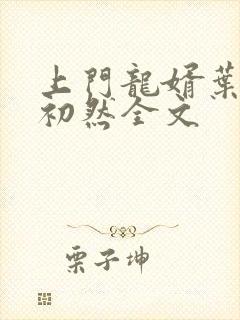 上門龍婿葉
初然全文
栗子坤